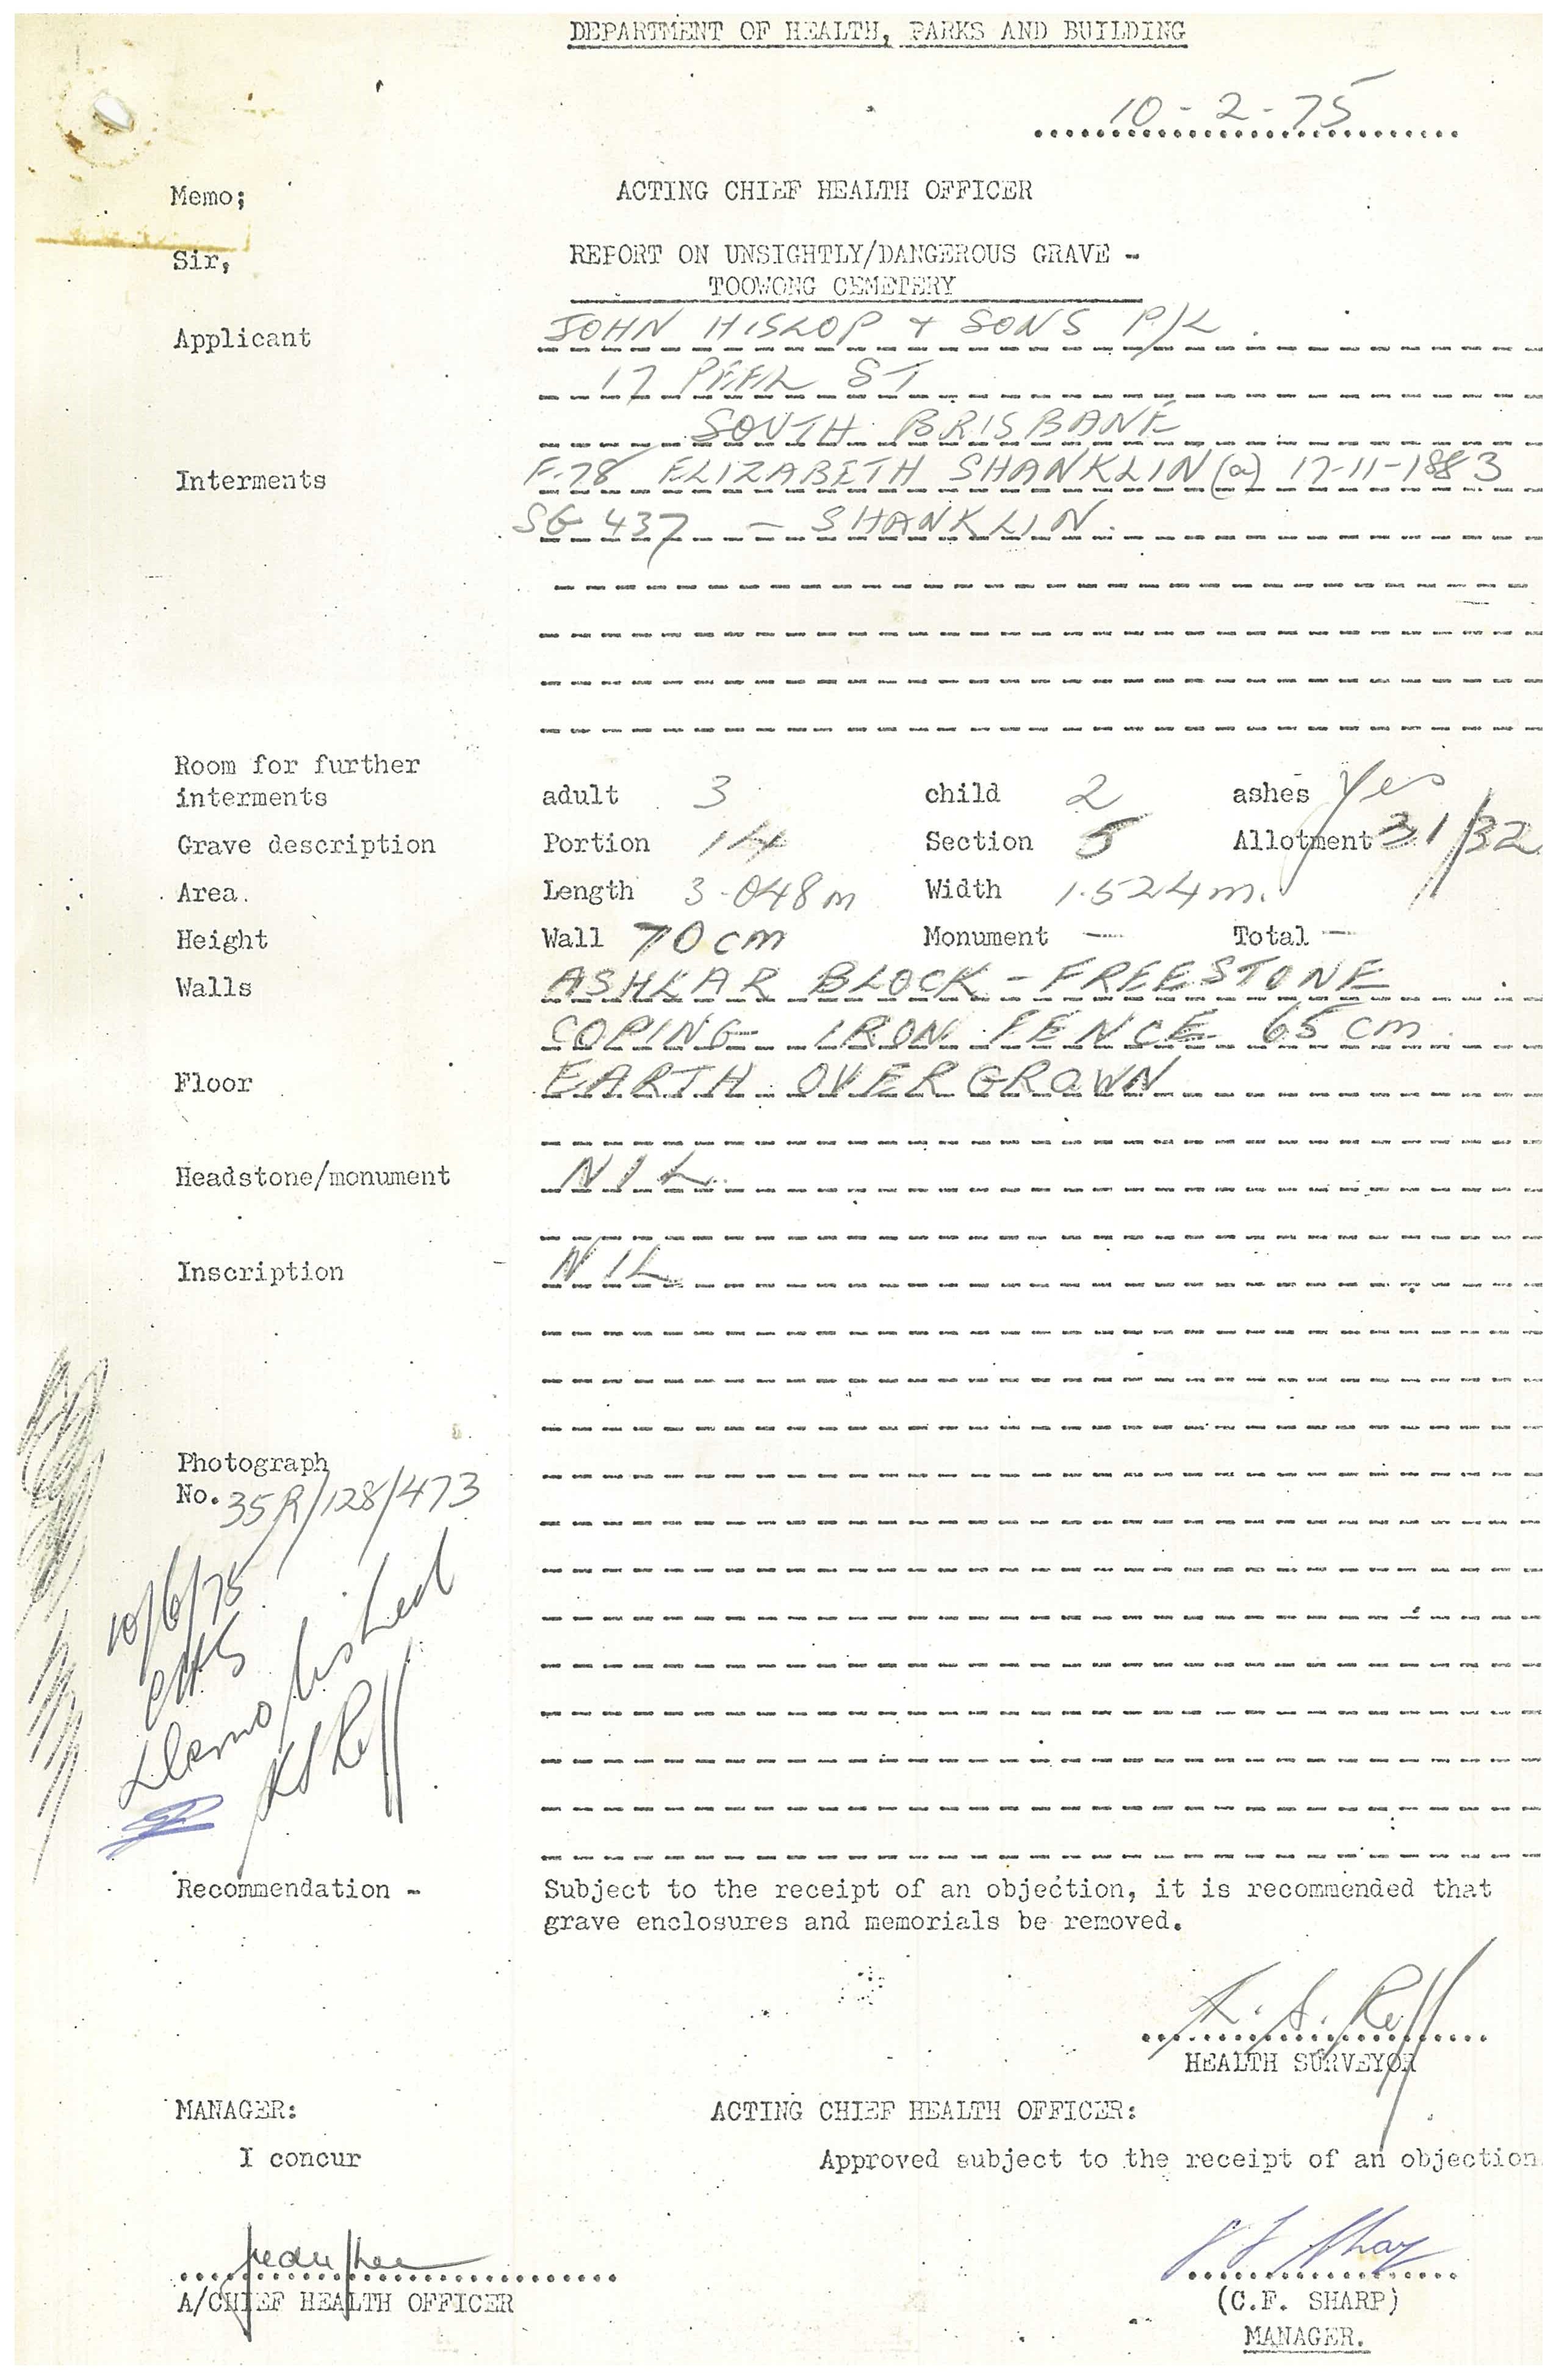 DEPARTMENT OF HEALTH, PARKS AND BUILDING
10-2-75
Memo; ACTING CHIEF HEALTH OFFICER
Sir, REPORT ON UNSIGHTLY/DANGEROUS GRAVE -
TOOWONG CEMETERY
Applicant JOHN HISLOP + SONS P/L.
17 PEEL ST
SOUTH BRISBANE
Interments F.78 ELIZABETH SHANKLIN (a) 17-11-1883
SG 437 - SHANKLIN.
Room for further
interments adult 3 child 2 ashes Yes
Grave description Portion 14 Section 5 Allotment 31/32
Area. Length 3.048m Width 1.524m.
Height Wall 70cm Monument — Total —
Walls ASHLAR BLOCK - FREESTONE
COPING IRON FENCE 65cm
Floor EARTH OVERGROWN
Headstone/monument NIL
Inscription NIL
Photograph
No. 35R/128/473
10/6/75
CHS
Demolished
Recommendation - Subject to the receipt of an objection, it is recommended that
grave enclosures and memorials be removed.
HEALTH SURVEYOR
MANAGER: ACTING CHIEF HEALTH OFFICER:
I concur Approved subject to the receipt of an objection
A/CHIEF HEALTH OFFICER
(C.F. SHARP)
MANAGER.